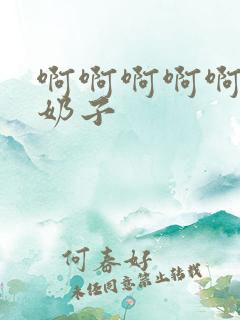 啊啊啊啊啊
奶子
何春好
未经同意禁止转载